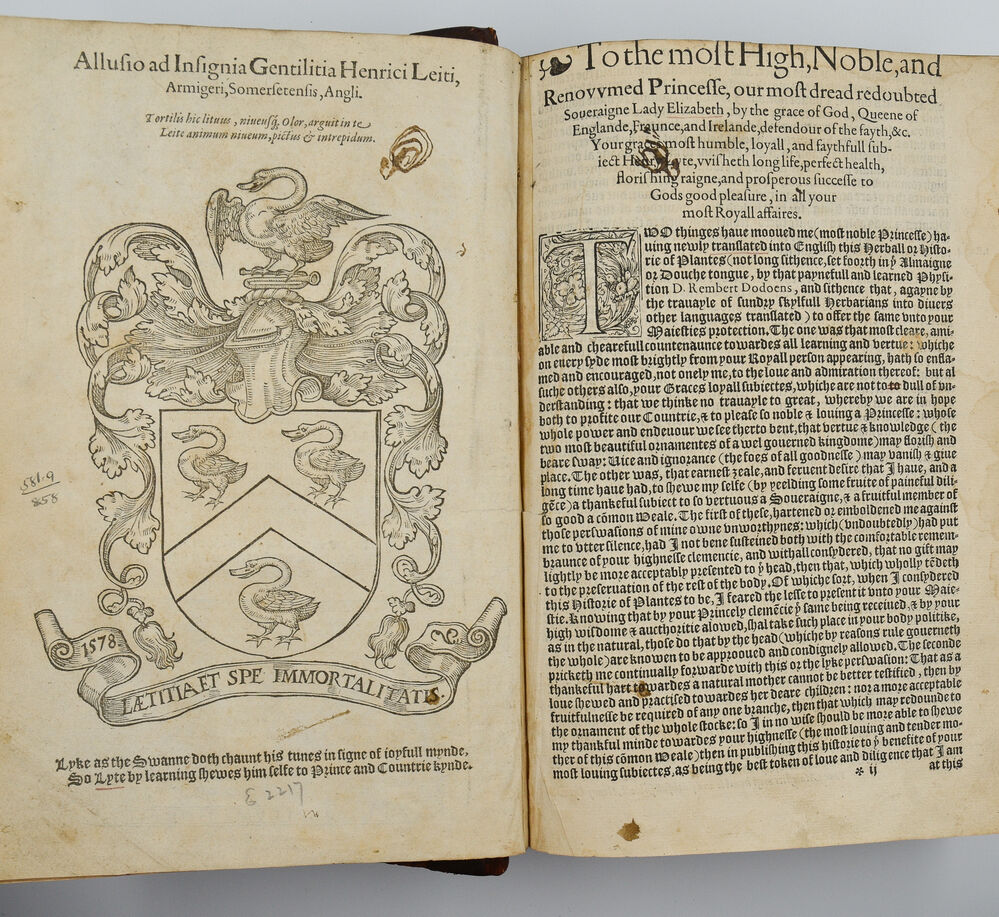 Allusio ad Insignia Gentilitia Henrici Leiti,
Armigeri, Somersetensis, Angli.
Tortilis hic lituus, niveusq́, Olor, arguit in te
Leite animum niueum, pictus & intrepidum.
581.9
858
1578.
LÆTITIA ET SPE IMMORTALITATIS.
Lyke as the Swanne doth chaunt his tunes in signe of ioyfull mynde,
So Lyte by learning shewes him selfe to Prince and Countrie kynde.
E 2217
To the most High, Noble, and
Renovvmed Princesse, our most dread redoubted
Soueraigne Lady Elizabeth, by the grace of God, Queene of
Englande, Fraunce, and Irelande, defendour of the fayth, &c.
Your graces most humble, loyall, and faythfull sub-
iect Henry Lyte, vvisheth long life, perfect health,
florishing raigne, and prosperous successe to
Gods good pleasure, in all your
most Royall affaires.
TWO thinges haue mooued me (most noble Princesse) ha-
uing newly translated into English this Herball or Histo-
rie of Plantes (not long sithence, set foorth in ẙ Almaigne
or Douche tongue, by that paynefull and learned Physi-
tion D. Rembert Dodoens, and sithence that, agayne by
the trauayle of sundry skylfull Herbarians into diuers
other languages translated) to offer the same vnto your
Maiesties protection. The one was that most cleare, ami-
able and chearefull countenaunce towardes all learning and vertue: whiche
on euery syde most brightly from your Royall person appearing, hath so enfla-
med and encouraged, not onely me, to the loue and admiration thereof: but al
suche others also, your Graces loyall subiectes, whiche are not to to dull of vn-
derstanding: that we thinke no trauayle to great, whereby we are in hope
both to profite our Countrie, & to please so noble & louing a Princesse: whose
whole power and endeuour we see therto bent, that vertue & knowledge (the
two most beautiful ornamentes of a wel gouerned kingdome) may florish and
beare sway: Vice and ignorance (the foes of all goodnesse) may vanish & giue
place. The other was, that earnest zeale, and feruent desire that I haue, and a
long time haue had, to shew my selfe (by yeelding some fruite of paineful dili-
gẽce) a thankeful subiect to so vertuous a Soueraigne, & a fruitful member of
so good a cõmon Weale. The first of these, hartened or emboldened me against
those perswasions of mine owne vnworthynes: which (vndoubtedly) had put
me to vtter silence, had I not bene susteined both with the comfortable remem-
braunce of your highnesse clemencie, and withall consydered, that no gift may
lightly be more acceptably presented to ẙ head, then that, which wholly tẽdeth
to the preseruation of the rest of the body. Of whiche sort, when I consydered
this Historie of Plantes to be, I feared the lesse to present it vnto your Maie-
stie. Knowing that by your Princely clemẽcie ẙ same being receiued, & by your
high wisdome & aucthoritie alowed, shal take such place in your body politike,
as in the natural, those do that by the head (whiche by reasons rule gouerneth
the whole) are knowen to be approoued and condignely allowed. The seconde
pricketh me continually forwarde with this or the lyke perswasion: That as a
thankeful hart towardes a natural mother cannot be better testified, then by
loue shewed and practised towardes her deare children: nor a more acceptable
fruitfulnesse be required of any one branche, then that which may redounde to
the ornament of the whole stocke: so I in no wise should be more able to shewe
my thankful minde towardes your highnesse (the most louing and tender mo-
ther of this cõmon Weale) then in publishing this historie to ẙ benefite of your
most louing subiectes, as being the best token of loue and diligence that I am
* ij at this